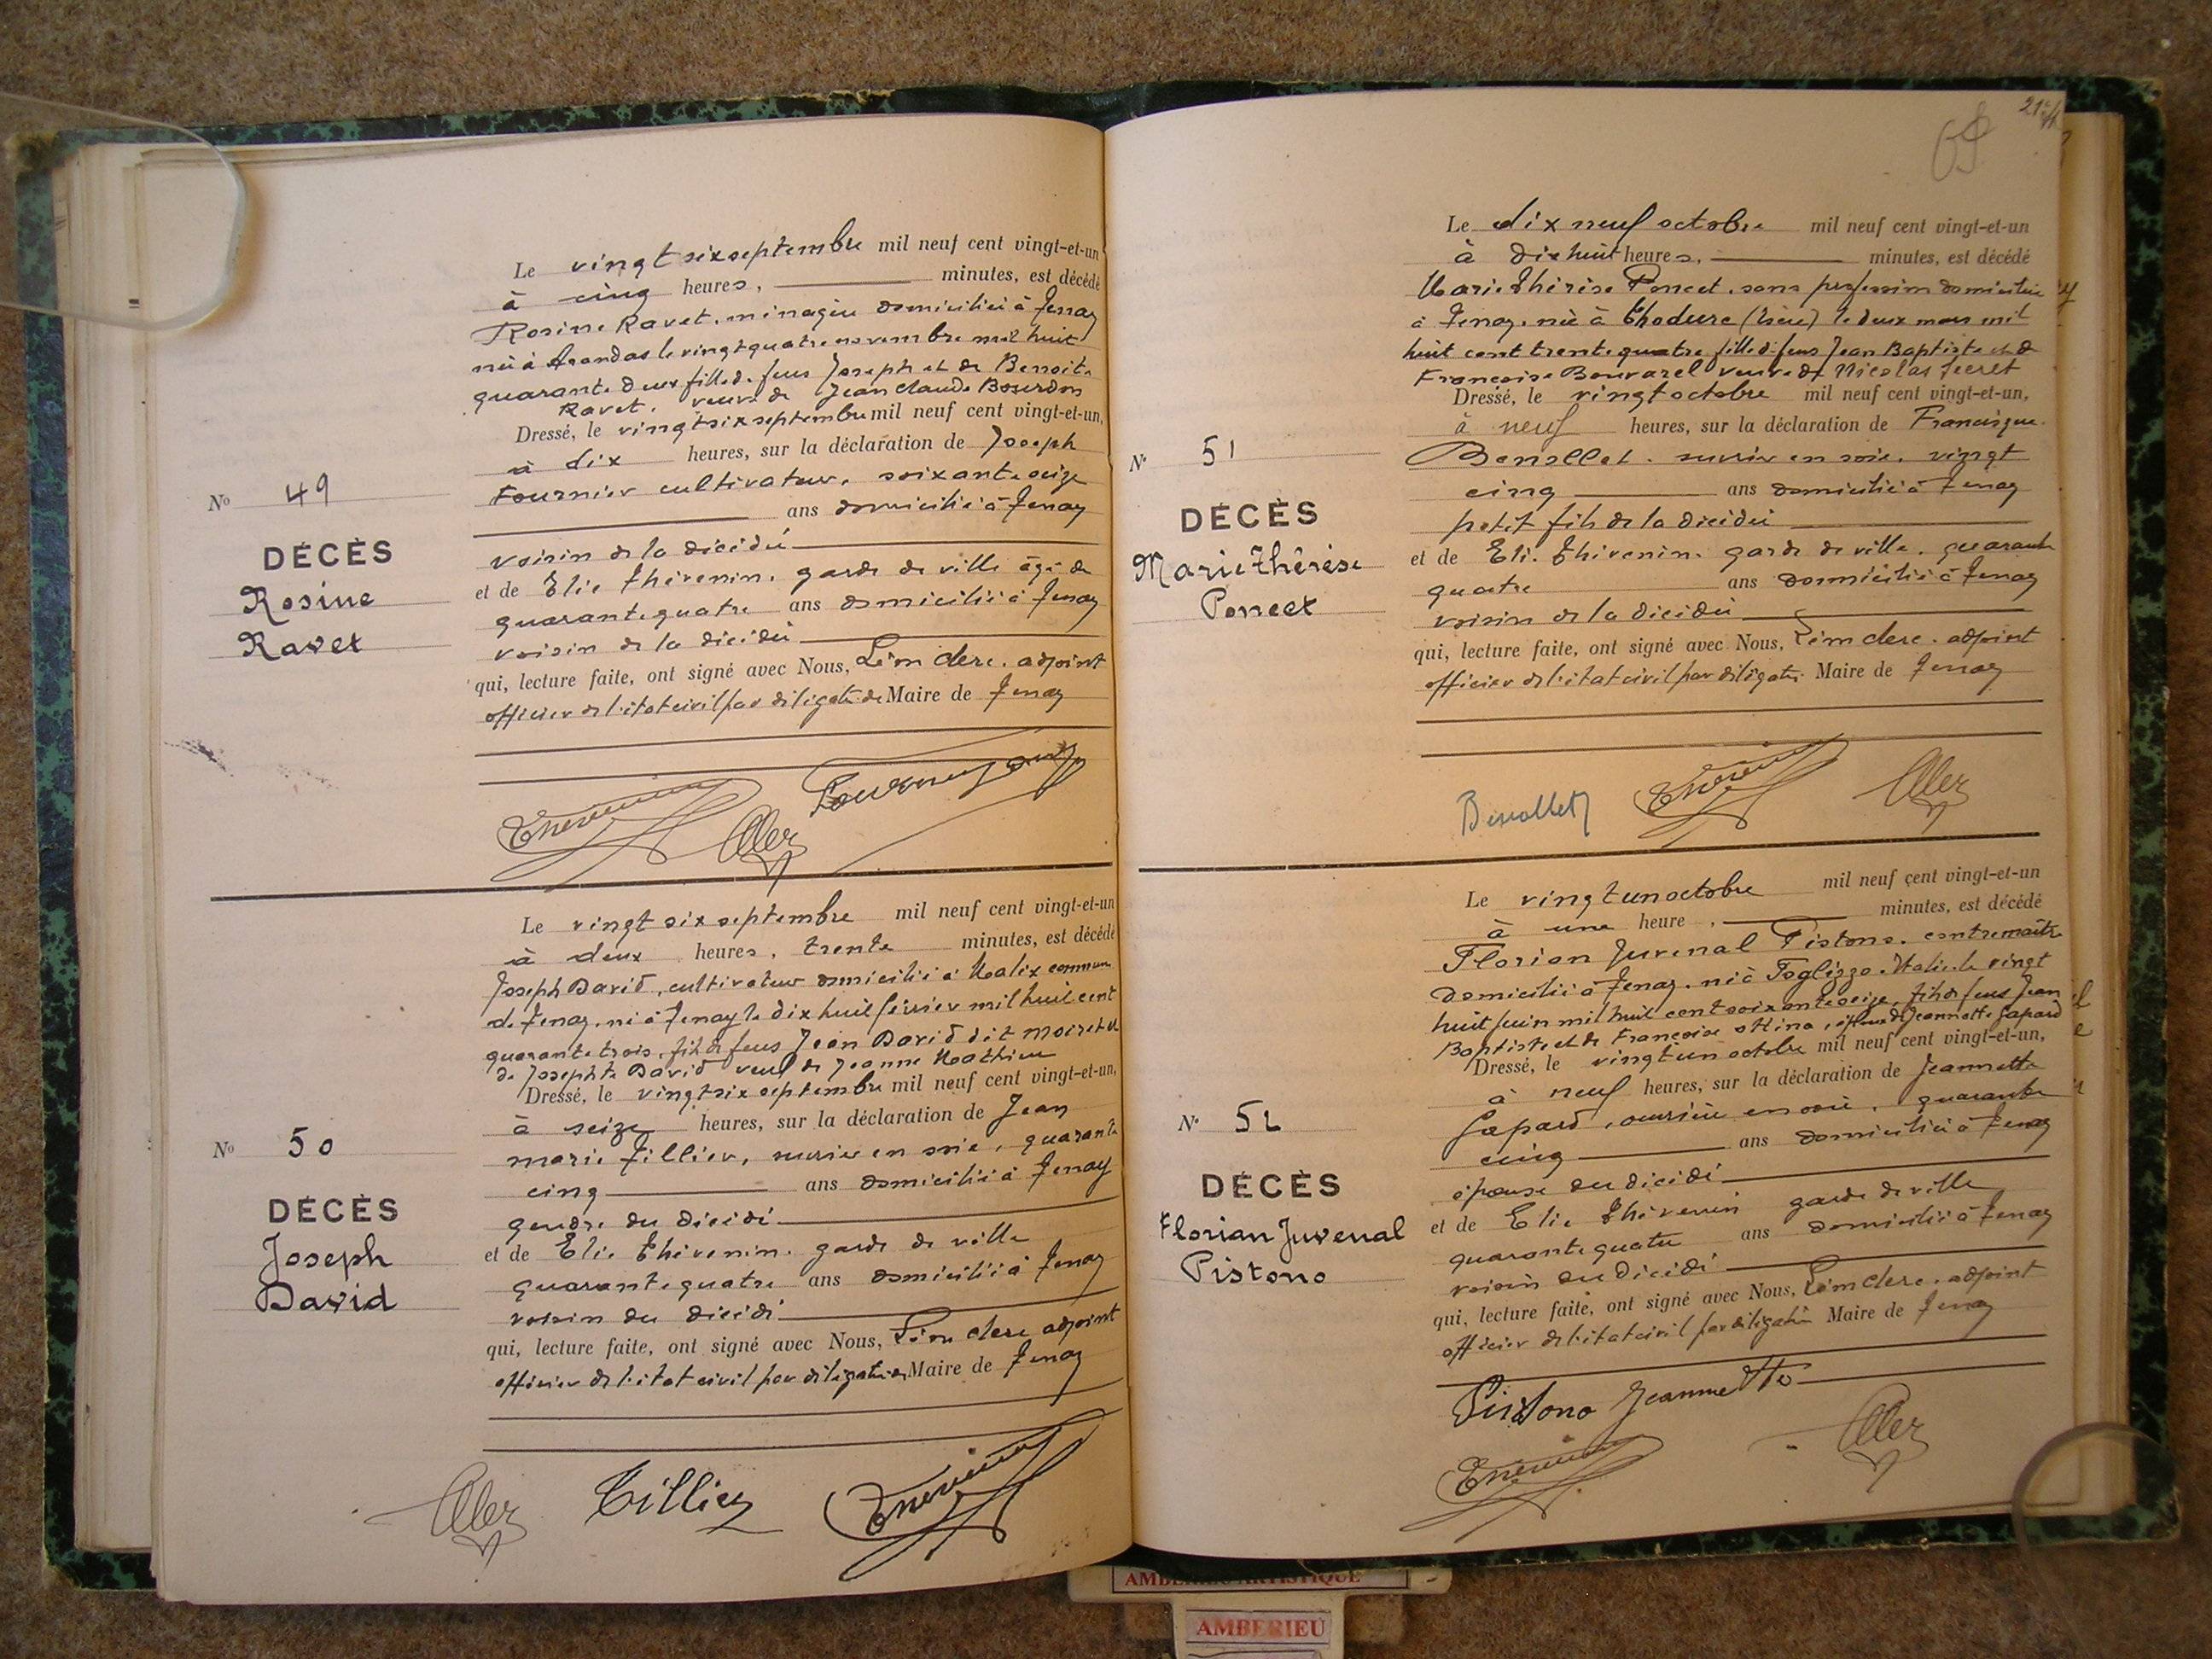 Le vingt six septembre mil neuf cent vingt-et-un
à cinq heures, minutes, est décédé
Rosine Ravet, ménagère domiciliée à Tenay
née à Arandas le vingt quatre novembre mil huit
quarante deux fille de feus Joseph et de Benoite
Ravet. veuve de Jean Claude Bourdon
Dressé, le vingt six septembre mil neuf cent vingt-et-un,
à dix heures, sur la déclaration de Joseph
Fournier cultivateur, soixante seize
ans domicilié à Tenay
voisin de la décédée
et de Elie Thévenin. garde de ville âgé de
quarante quatre ans domicilié à Tenay
voisin de la décédée
qui, lecture faite, ont signé avec Nous, Léon Clerc. adjoint
officier de l'état civil par délégation du Maire de Tenay
No 49
DÉCÈS
Rosine
Ravet
Le vingt six septembre mil neuf cent vingt-et-un
à deux heures, trente minutes, est décédé
Joseph David, cultivateur domicilié à Malix commune
de Tenay. né à Tenay le dix huit février mil huit cent
quarante trois, fils de feus Jean David dit Moiret et
de Josephte David veuf de Jeanne Mathieu
Dressé, le vingt six septembre mil neuf cent vingt-et-un,
à seize heures, sur la déclaration de Jean
Marie Tillier, ouvrier en soie, quarante
cinq ans domicilié à Tenay
gendre du décédé
et de Elie Thévenin. garde de ville
quarante quatre ans domicilié à Tenay
voisin du décédé
qui, lecture faite, ont signé avec Nous, Léon Clerc adjoint
officier de l'état civil par délégation du Maire de Tenay
No 50
DÉCÈS
Joseph
David
Clerc Tillier Thévenin
69
Le dix neuf octobre mil neuf cent vingt-et-un
à dix huit heures, minutes, est décédé
Marie Thérèse Poncet, sans profession domiciliée
à Tenay. née à Thodure (Isère) le deux mars mil
huit cent trente quatre fille de feus Jean Baptiste et de
Françoise Bouvarel veuve de Nicolas Ferret
Dressé, le vingt octobre mil neuf cent vingt-et-un,
à neuf heures, sur la déclaration de Francisque
Benollet. ouvrier en soie, vingt
cinq ans domicilié à Tenay
petit fils de la décédée
et de Elie Thévenin. garde de ville. quarante
quatre ans domicilié à Tenay
voisin de la décédée
qui, lecture faite, ont signé avec Nous, Léon Clerc. adjoint
officier de l'état civil par délégation Maire de Tenay
N° 51
DÉCÈS
Marie Thérèse
Poncet
Benollet Thévenin Clerc
Le vingt un octobre mil neuf cent vingt-et-un
à une heure, minutes, est décédé
Florian Juvenal Pistono. contremaître
domicilié à Tenay. né à Foglizzo Italie le vingt
huit juin mil huit cent soixante seize, fils de feus Jean
Baptiste et de Françoise Ottino, époux de Jeannette Gapard
Dressé, le vingt un octobre mil neuf cent vingt-et-un,
à neuf heures, sur la déclaration de Jeannette
Gapard, ouvrière en soie, quarante
cinq ans domiciliée à Tenay
épouse du décédé
et de Elie Thévenin garde de ville
quarante quatre ans domicilié à Tenay
voisin du décédé
qui, lecture faite, ont signé avec Nous, Léon Clerc. adjoint
officier de l'état civil par délégation Maire de Tenay
N° 52
DÉCÈS
Florian Juvenal
Pistono
Pistono Jeannette
Thévenin Clerc
AMBERIEU ARTISTIQUE
AMBERIEU